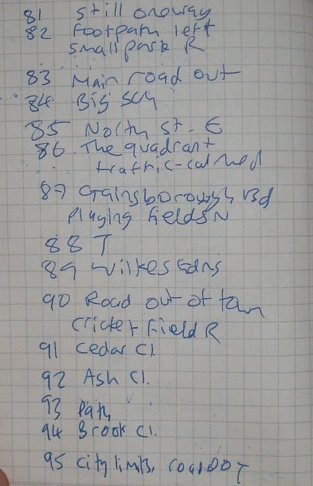 81 Still oneway
82 Footpath left
small park R
83 Main road out
84 Big sch
85 North St. E
86 The quadrant
traffic-calmed
87 Gainsborough Rd
Playing Fields N
88 T
89 Wilkes Gdns
90 Road out of town
Cricket Field R
91 Cedar Cl.
92 Ash Cl.
93 Path
94 Brook Cl.
95 City limits,